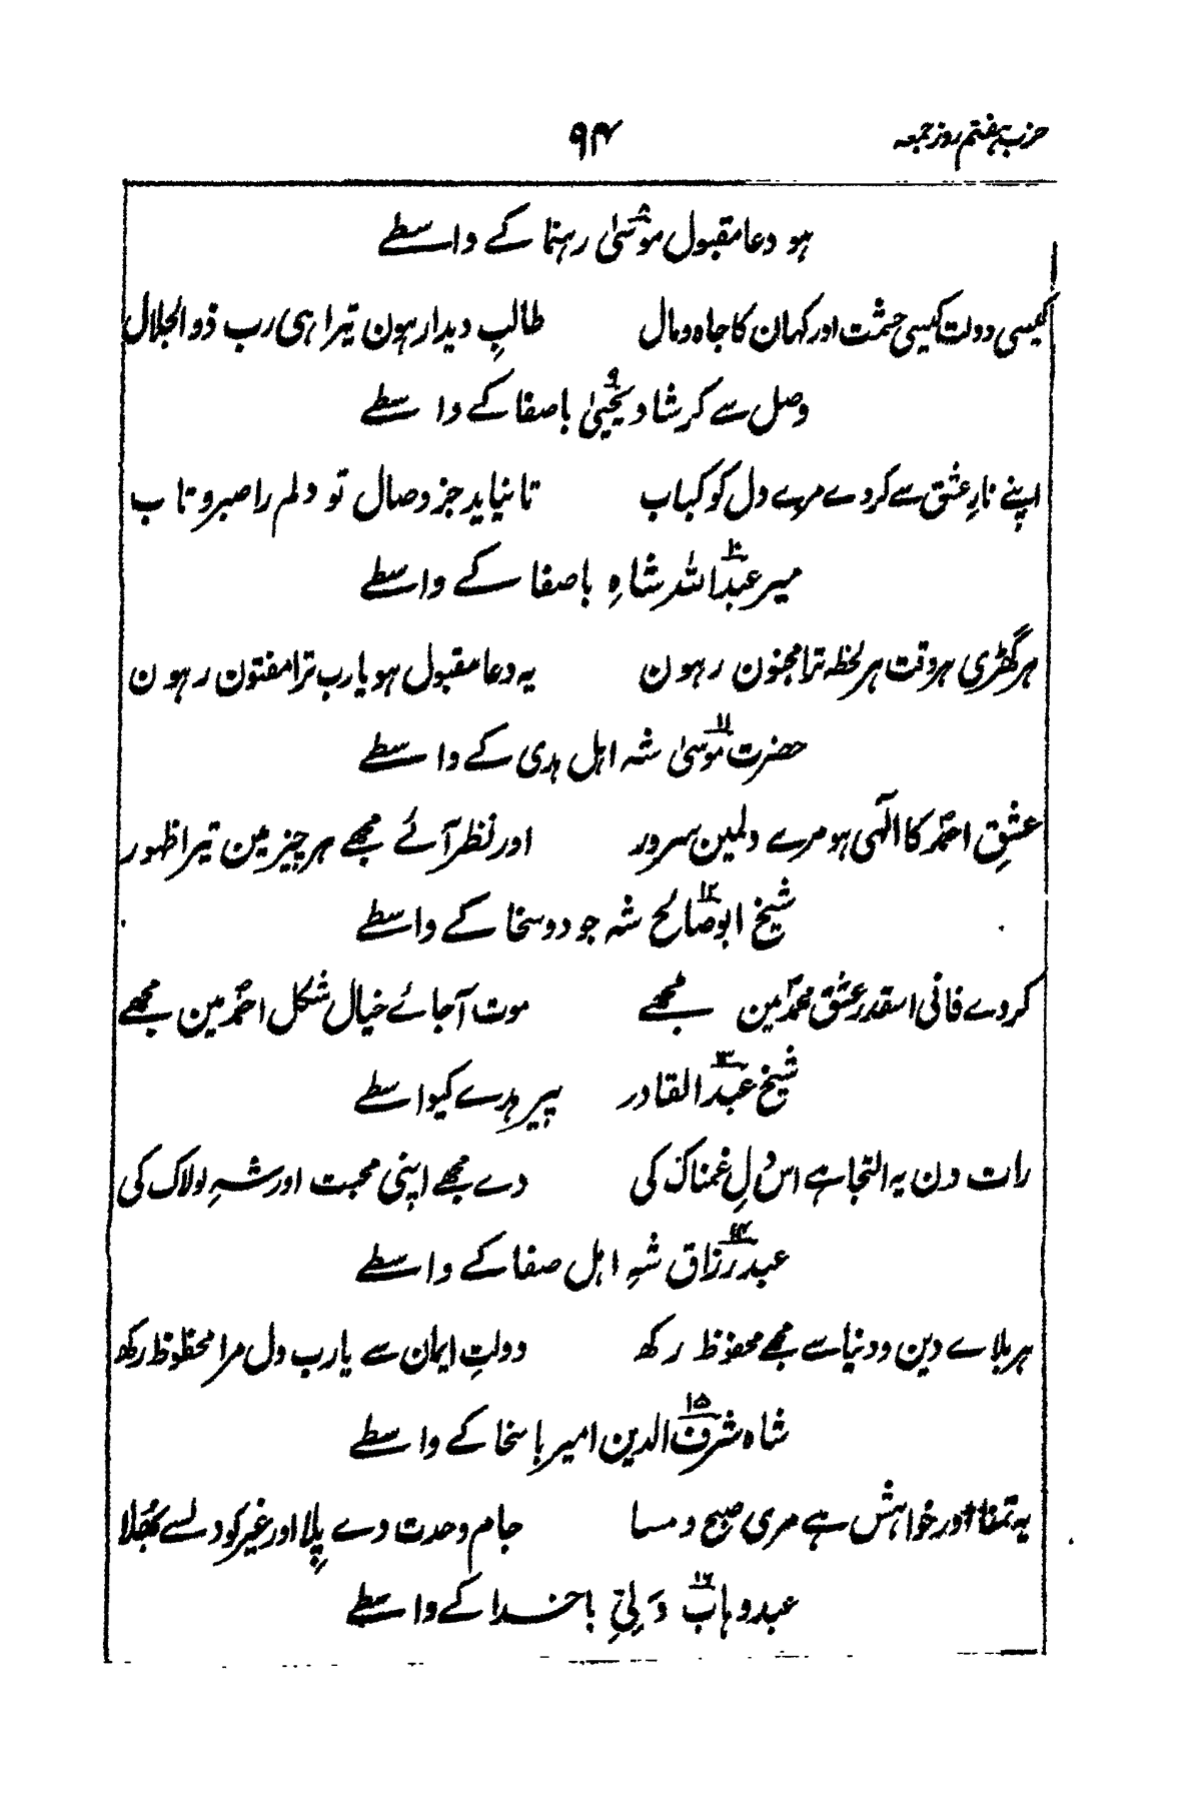 حزب ہفتم روز جمعہ ۹۴
ہو دعا مقبول موسیٰ۸ رہنما کے واسطے
کیسی دولت کیسی حشمت اور کہان کا جاہ و مال طالبِ دیدار ہون تیرا ہی رب ذو الجلال
وصل سے کر شاد یحییٰ۹ باصفا کے واسطے
اپنے نارِ عشق سے کر دے مرے دل کو کباب تا نیاید جز وصال تو دلم را صبر و تاب
میر عبد۱۰ اللہ شاہِ باصفا کے واسطے
ہر گھڑی ہر وقت ہر لحظہ ترا مجنون رہون یہ دعا مقبول ہو یا رب ترا مفتون رہون
حضرت موسیٰ۱۱ شہ اہل ہدی کے واسطے
عشقِ احمدؐ کا الٓہی ہو مرے دلمین سرور اور نظر آئے مجھے ہر چیز مین تیرا ظہور
شیخ ابو صالح۱۲ شہ جود و سخا کے واسطے
کر دے فانی اسقدر عشق محمدؐ مین مجھے موت آجائے خیال شکل احمدؐ مین مجھے
شیخ عبد۱۳ القادر پیر ہدے کیواسطے
رات دن یہ التجا ہے اس دلِ غمناک کی دے مجھے اپنی محبت اور شہِ لولاک کی
عبد رزاق۱۴ شہِ اہل صفا کے واسطے
ہر بلاے دین و دنیا سے مجھے محفوظ رکھ دولتِ ایمان سے یا رب دل مرا محظوظ رکھ
شاہ شرف۱۵ الدین امیر با سخا کے واسطے
یہ تمنا اور خواہش ہے مری صبح و مسا جام وحدت دے پِلا اور غیر کو دلسے بُھلا
عبد وہاب۱۶ وَلیِ با خدا کے واسطے